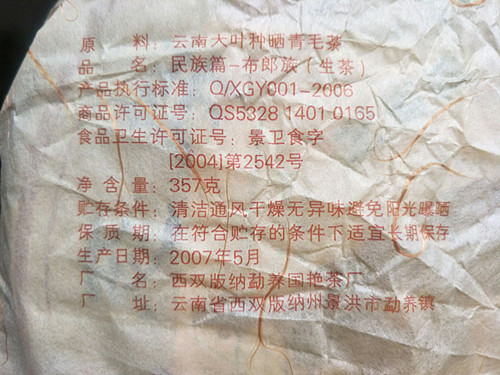 原 料：云南大叶种晒青毛茶
品 名：民族篇-布郎族（生茶）
产品执行标准：Q/XGY001-2006
商品许可证号：QS5328 1401 0165
食品卫生许可证号：景卫食字
[2004]第2542号
净 含 量：357克
贮存条件：清洁通风干燥无异味避免阳光曝晒
保 质 期：在符合贮存的条件下适宜长期保存
生产日期：2007年5月
厂 名：西双版纳勐养国艳茶厂
厂 址：云南省西双版纳州景洪市勐养镇